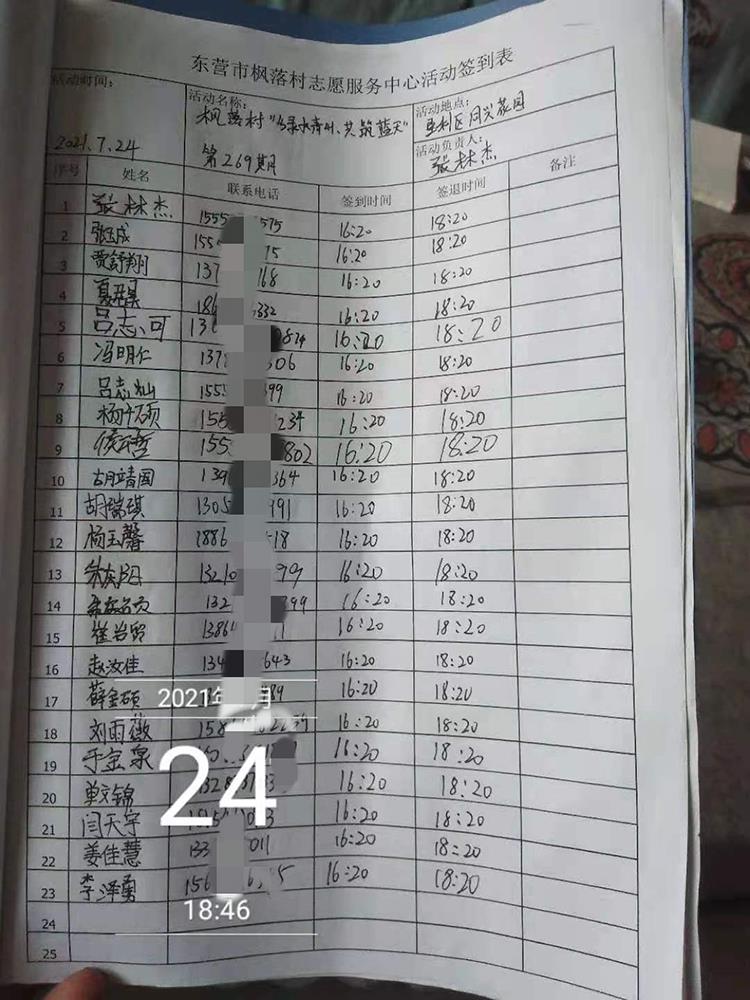 东营市枫落村志愿服务中心活动签到表
活动时间： 2021.7.24
活动名称： 枫落村“绿水青山、共筑蓝天” 第269期
活动地点： 垦利区同兴花园
活动负责人： 张林杰
序号 姓名 联系电话 签到时间 签退时间 备注
1 张林杰 1555 575 16:20 18:20
2 张玉成 155 75 16:20 18:20
3 贾舒翔 137 168 16:20 18:20
4 186 332 16:20 18:20
5 吕志可 136 874 16:20 18:20
6 冯明仁 137 506 16:20 18:20
7 吕志灿 1555 399 16:20 18:20
8 杨千硕 155 234 16:20 18:20
9 155 802 16:20 18:20
10 胡靖国 139 364 16:20 18:20
11 胡瑞琪 1305 391 16:20 18:20
12 杨玉馨 1886 18 16:20 18:20
13 1321 99 16:20 18:20
14 132 399 16:20 18:20
15 1386 1 16:20 18:20
16 赵汝佳 134 643 16:20 18:20
17 薛金硕 1 89 16:20 18:20
18 刘雨薇 158 16:20 18:20
19 于金泉 16:20 18:20
20 单文锦 16:20 18:20
21 闫天宇 16:20 18:20
22 姜佳慧 133 011 16:20 18:20
23 李泽勇 156 5 16:20 18:20
24
25
2021年 月
24
18:46